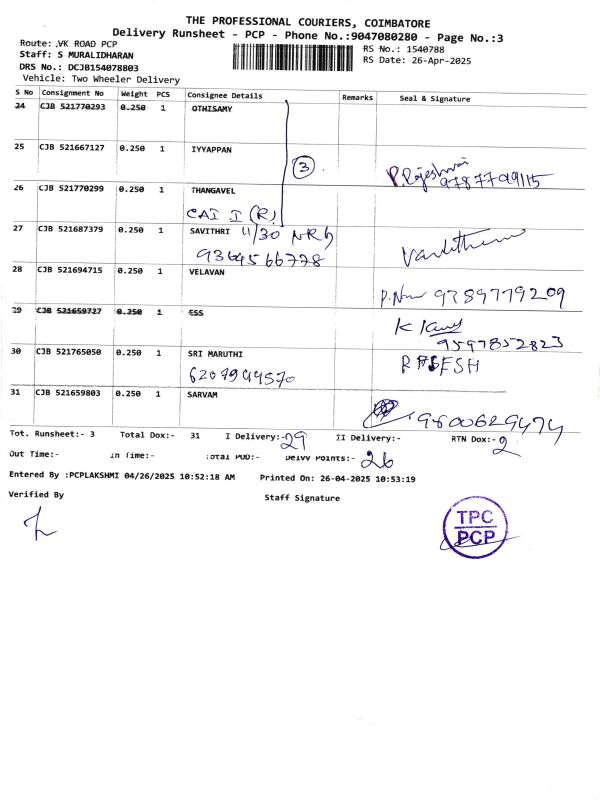 THE PROFESSIONAL COURIERS, COIMBATORE
Delivery Runsheet - PCP - Phone No.:9047080280 - Page No.:3
Route: .VK ROAD PCP
RS No.: 1540788
Staff: S MURALIDHARAN
RS Date: 26-Apr-2025
DRS No.: DCJB154078803
Vehicle: Two Wheeler Delivery
S No Consignment No Weight PCS Consignee Details Remarks Seal & Signature
24 CJB 521770293 0.250 1 OTHISAMY
25 CJB 521667127 0.250 1 IYYAPPAN
3
P. Rajeshwari
9787749115
26 CJB 521770299 0.250 1 THANGAVEL
27 CJB 521687379 0.250 1 SAVITHRI 11/30
9364566778
28 CJB 521694715 0.250 1 VELAVAN
9789779209
29 CJB 521659727 0.250 1 ESS
9597852823
30 CJB 521765050 0.250 1 SRI MARUTHI
6207944570
31 CJB 521659803 0.250 1 SARVAM
9600629474
Tot. Runsheet:- 3 Total Dox:- 31 I Delivery:- 29 II Delivery:- RTN Dox:- 2
Out Time:- In Time:- Total POD:- Delvy Points:- 26
Entered By :PCPLAKSHMI 04/26/2025 10:52:18 AM Printed On: 26-04-2025 10:53:19
Verified By
Staff Signature
TPC
PCP